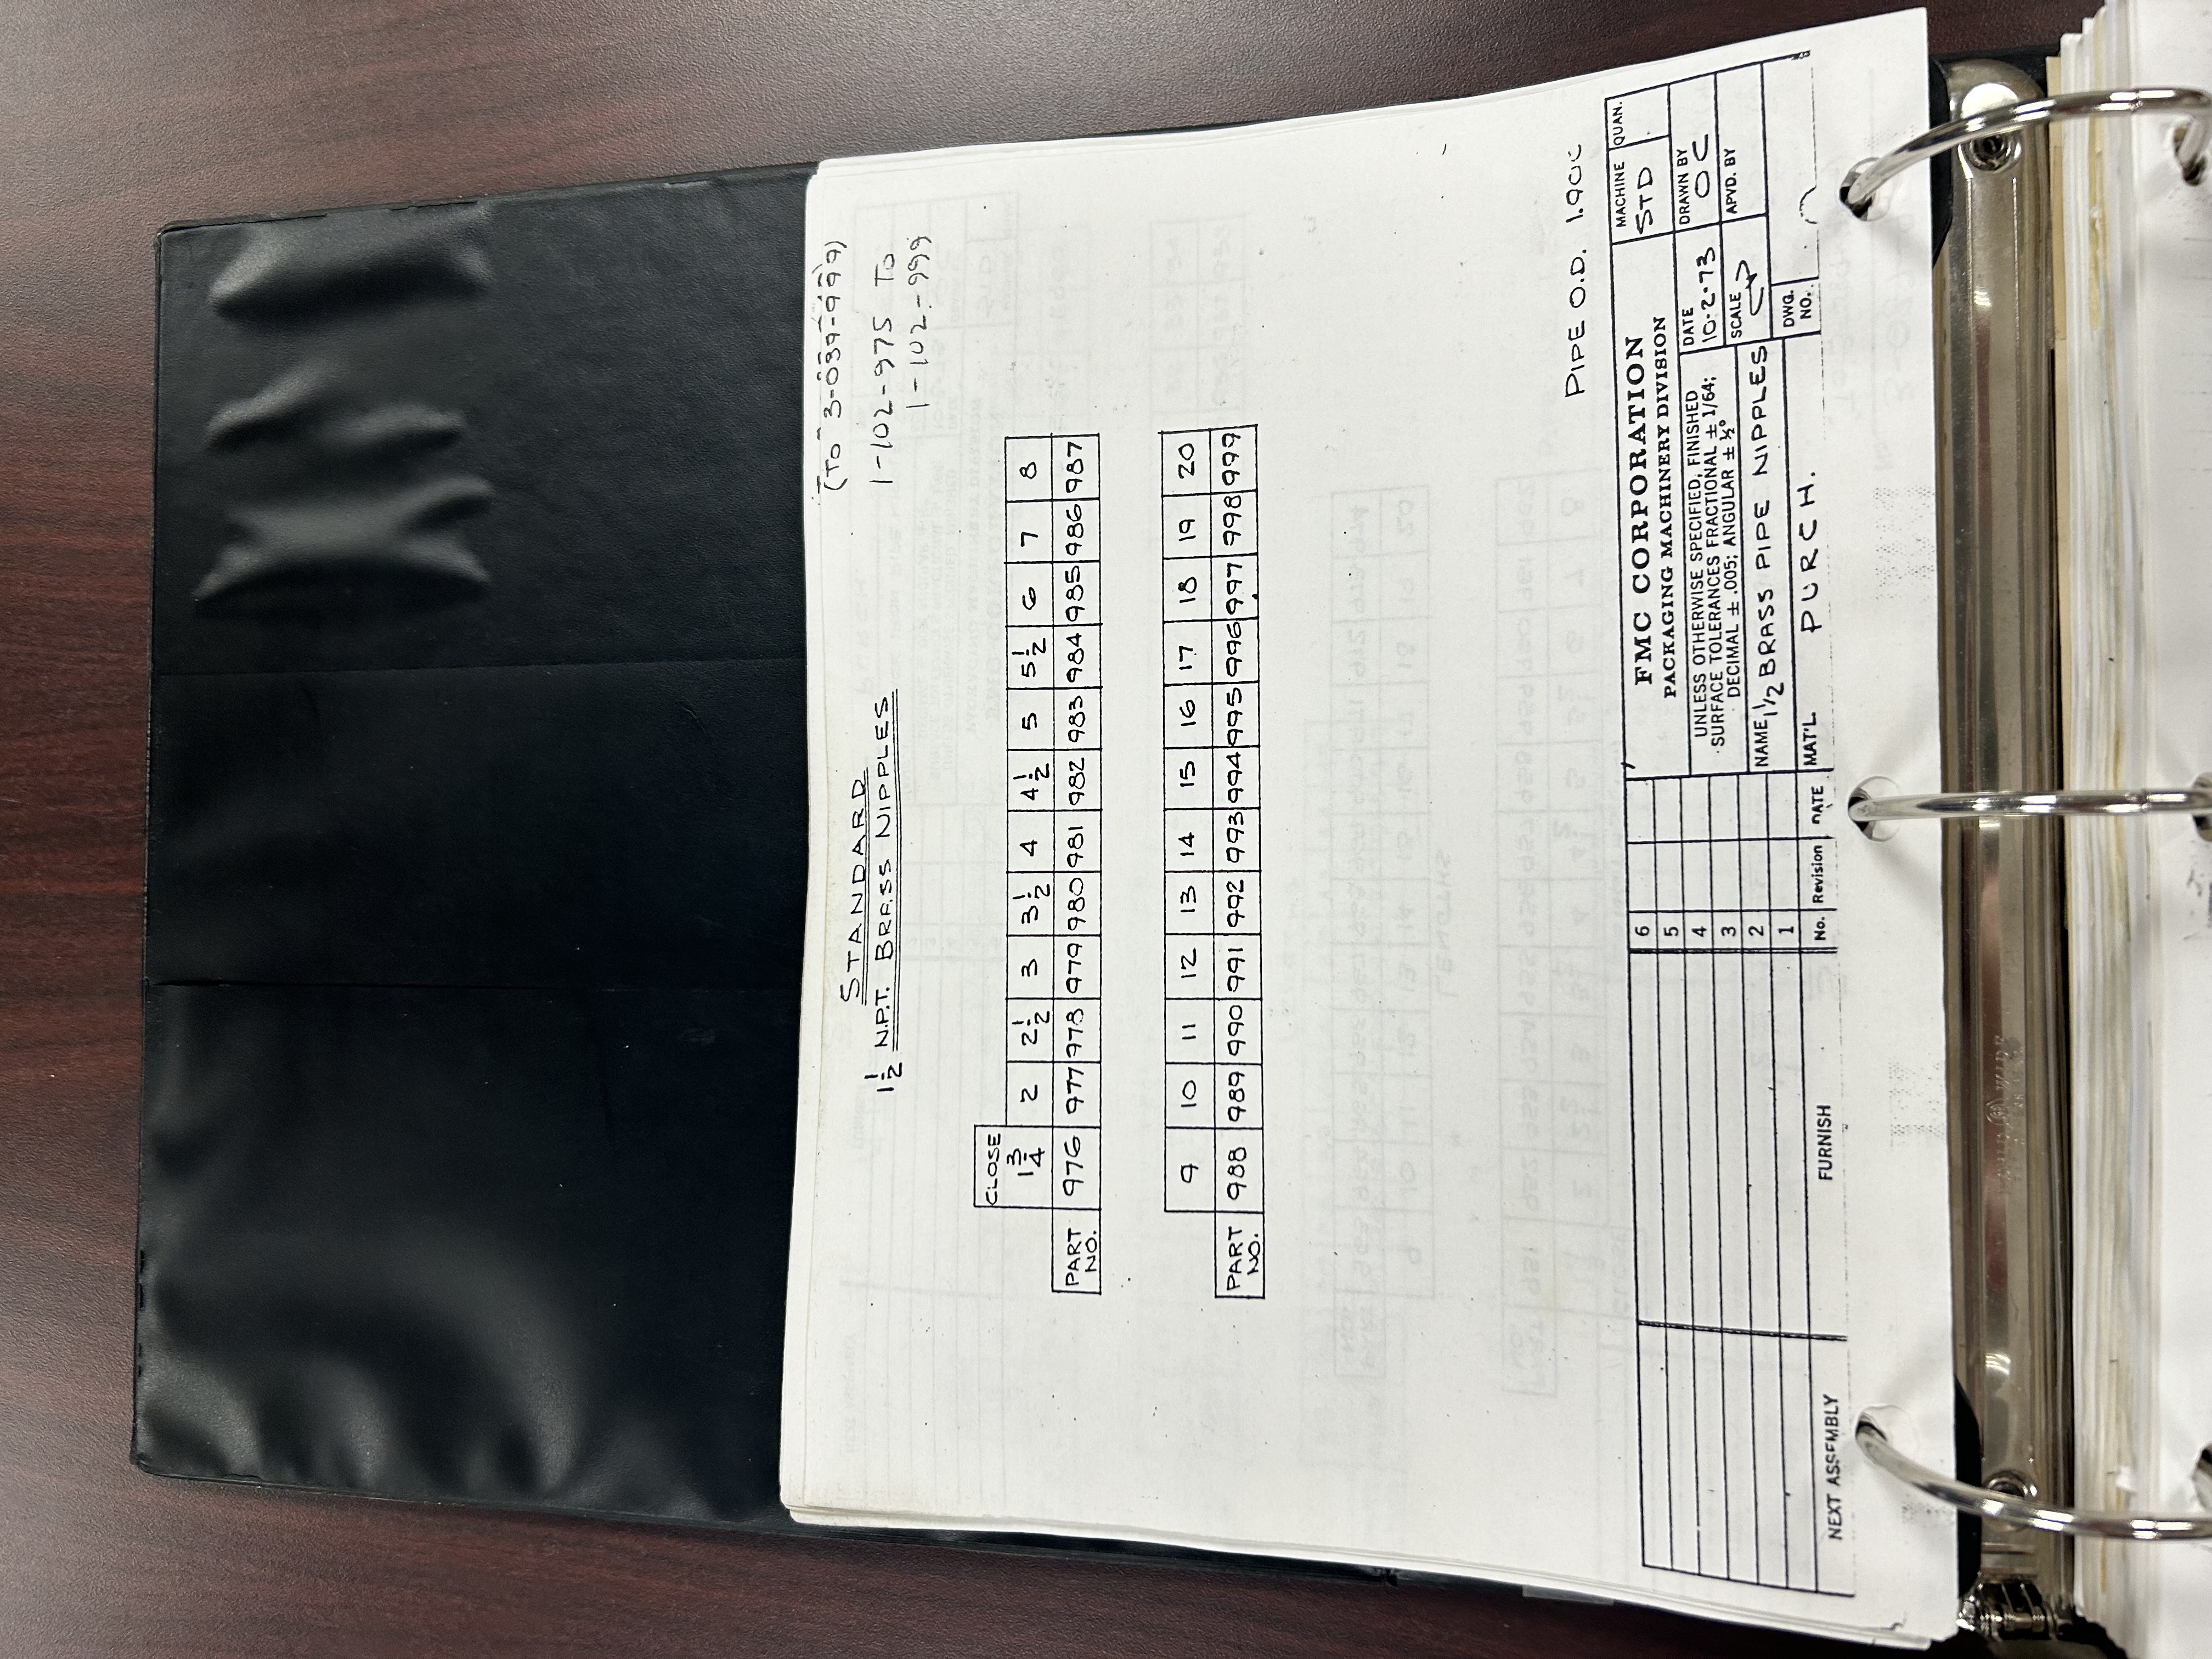 (TO 3-039-999)
STANDARD
1 1/2 N.P.T. BRASS NIPPLES
1-102-975 TO
1-102-999
CLOSE
1 3/4 2 2 1/2 3 3 1/2 4 4 1/2 5 5 1/2 6 7 8
PART NO. 976 977 978 979 980 981 982 983 984 985 986 987
9 10 11 12 13 14 15 16 17 18 19 20
PART NO. 988 989 990 991 992 993 994 995 996 997 998 999
PIPE O.D. 1.900
6
5
4
3
2
1
NEXT ASSEMBLY
FURNISH
No. Revision DATE
FMC CORPORATION
PACKAGING MACHINERY DIVISION
MACHINE
STD
QUAN.
UNLESS OTHERWISE SPECIFIED, FINISHED
SURFACE TOLERANCES FRACTIONAL ± 1/64;
DECIMAL ± .005; ANGULAR ± ½°
DATE
10-2-73
DRAWN BY
OC
NAME 1 1/2 BRASS PIPE NIPPLES
SCALE
APVD. BY
MAT'L. PURCH.
DWG.
NO.